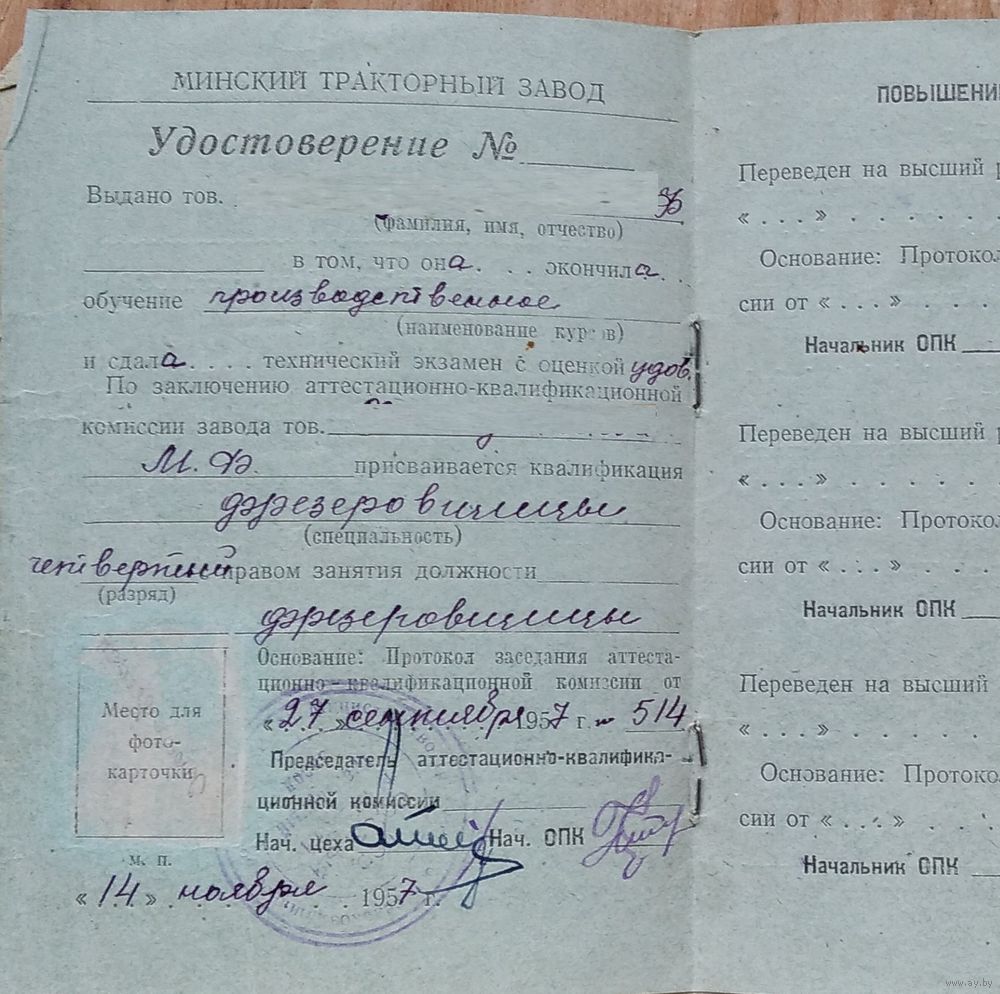 МИНСКИЙ ТРАКТОРНЫЙ ЗАВОД
Удостоверение №
Выдано тов.
(фамилия, имя, отчество)
в том, что она. . . окончила.
обучение производственное
(наименование курсов)
и сдала. . . . технический экзамен с оценкой удов.
По заключению аттестационно-квалификационной
комиссии завода тов.
М. Ф. присваивается квалификация
фрезеровщицы
(специальность)
четвертый с правом занятия должности
(разряд)
фрезеровщицы
Основание: Протокол заседания аттеста-
ционно-квалификационной комиссии от
« 27 » сентября 1957 г. № 514
Председатель аттестационно-квалифика-
ционной комиссии
Нач. цеха Нач. ОПК
Место для
фото-
карточки
м. п.
« 14 » ноября 1957 г.
ПОВЫШЕНИ
Переведен на высший р
« . . . » . . . . . .
Основание: Протокол
сии от « . . . » . . . .
Начальник ОПК
Переведен на высший р
« . . . » . . . . . .
Основание: Протокол
сии от « . . . » . . . .
Начальник ОПК
Переведен на высший
« . . . » . . . . . .
Основание: Протокол
сии от « . . . » . . . .
Начальник ОПК
www.ay.by